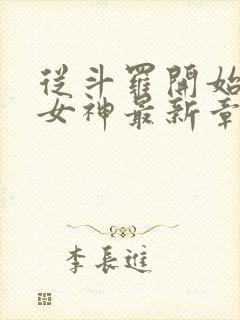 從斗羅開始
女神最新章
李長進